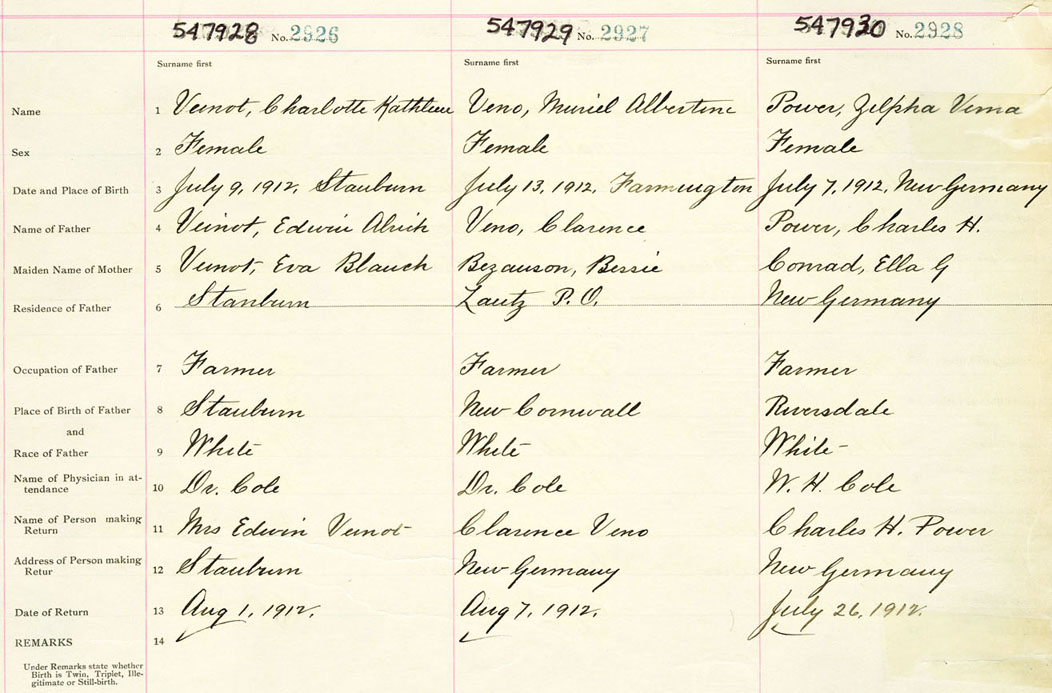 547928 No. 2926 547929 No. 2927 547930 No. 2928
Surname first Surname first Surname first
Name 1 Veinot, Charlotte Kathleen Veno, Muriel Albertine Power, Zilpha Verna
Sex 2 Female Female Female
Date and Place of Birth 3 July 9, 1912, Stanburn July 13, 1912, Farmington July 7, 1912, New Germany
Name of Father 4 Veinot, Edwin Veno, Clarence Power, Charles H.
Maiden Name of Mother 5 Veinot, Eva Blanch Bezanson, Bessie Conrad, Ella G
Residence of Father 6 Stanburn P.O. New Germany
Occupation of Father 7 Farmer Farmer Farmer
Place of Birth of Father 8 Stanburn New Cornwall Riversdale
and
Race of Father 9 White White White
Name of Physician in at-
tendance 10 Dr. Cole Dr. Cole W. H. Cole
Name of Person making
Return 11 Mrs Edwin Veinot Clarence Veno Charles H. Power
Address of Person making
Retur 12 Stanburn New Germany New Germany
Date of Return 13 Aug 1, 1912. Aug 7, 1912. July 26, 1912.
REMARKS 14
Under Remarks state whether
Birth is Twin, Triplet, Ille-
gitimate or Still-birth.